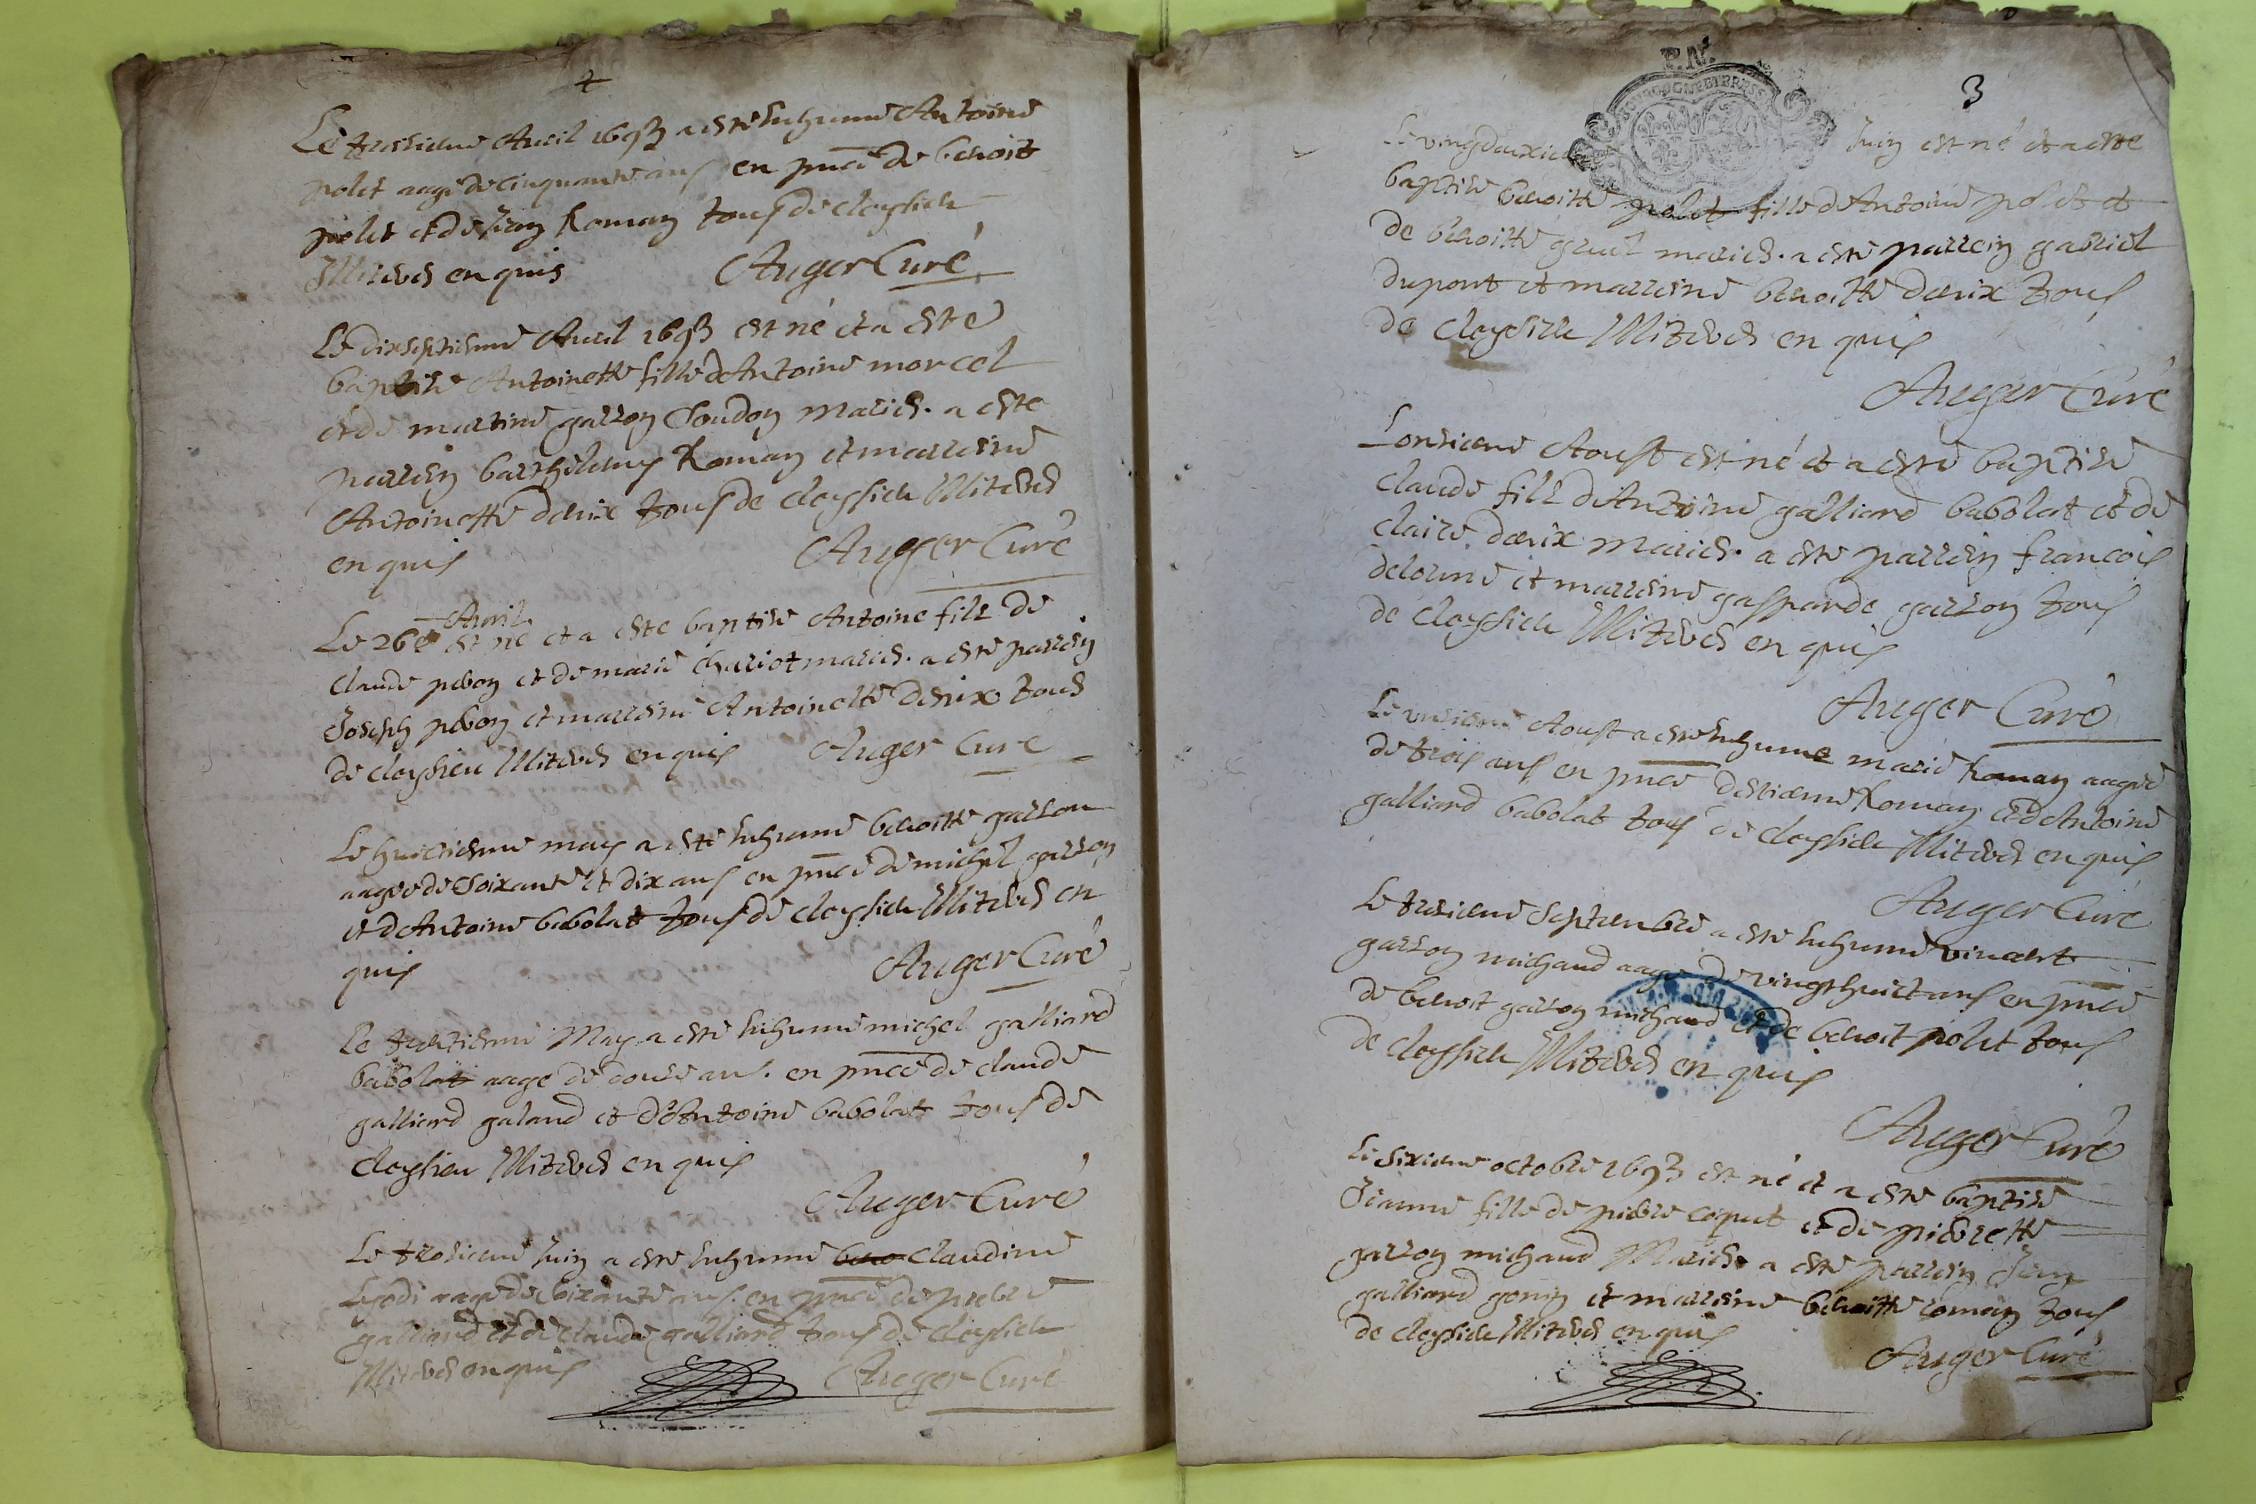 Le treisieme Avril 1693 a esté inhumé Antoine
polet aagé de cinquante ans en pnce de benoit
polet et de Jean Roman tous de cleysieu
Illiteres enquis Auger Curé
Le dixseptiesme Avril 1693 est né et a esté
baptisée Antoinette fille d'Antoine morcel
et de martine garzon Coudon mariés. a esté
parrein barthelemy Roman et marreine
Antoinette deuix tous de cleysieu Illiteres
enquis Auger Curé
Avril
Le 26e est né et a esté baptisé Antoine filz de
claude peron et de marie chariot mariés. a esté parrein
Joseph peron et marreine Antoinette deuix tous
de cleysieu Illiteres enquis Auger Curé
Le huictiesme may a esté inhumé benoitte garzon
aagée de soixante et dix ans en pnce de michel garzon
et d'Antoine babolat tous de cleysieu Illiteres en
quis Auger Curé
Le May a esté inhumé michel galliard
babolat aagé de douze ans. en pnce de claude
galliard galand et d'Antoine babolat tous de
cleysieu Illiteres enquis
Auger Curé
Le troisieme Juin a esté inhumé claudine
aagée de soixante ans en pnce de pierre
galliard et de claude galliard tous de cleysieu
Illiteres enquis Auger Curé
3
Le vingdeuxieme Juin est né et a esté
baptisée benoitte polet fille d'Antoine polet et
de benoitte gruel mariés. a esté parrein gabriel
dupont et marreine benoitte deuix tous
de cleysieu Illiteres enquis
Auger Curé
L'onzieme Aoust est né et a esté baptisé
claude filz d'Antoine galliard babolat et de
claire deuix mariés. a esté parrein francois
delorme et marreine gasparde garzon tous
de cleysieu Illiteres enquis
Auger Curé
Le Aoust a esté inhumé marie Roman aagée
de trois ans en pnce d'estienne Roman et d'Antoine
galliard babolat tous de cleysieu Illiteres enquis
Auger Curé
Le treisieme Septembre a esté inhumé vincent
garzon michaud aagé de vingthuict ans en pnce
de benoit garzon michaud et de benoit polet tous
de cleysieu Illiteres enquis
Auger Curé
Le sixieme octobre 1693 est né et a esté baptisée
Jeanne fille de pierre caput et de pierrette
garzon michaud Mariés a esté parrein Jean
galliard gonin et marreine benoitte roman tous
de cleysieu Illiteres enquis
Auger Curé